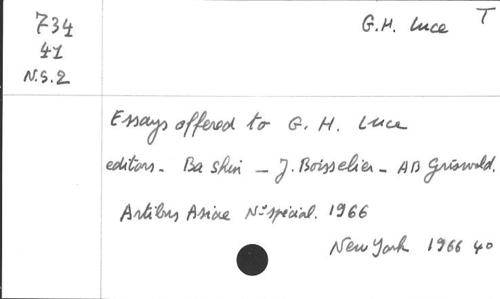 734
41
N.S.2
G.H. Luce T
Essays offered to G. H. Luce
editors - Ba Shin - J. Boisselier - AB Griswold.
Artibus Asiae No spécial. 1966
New York 1966 40